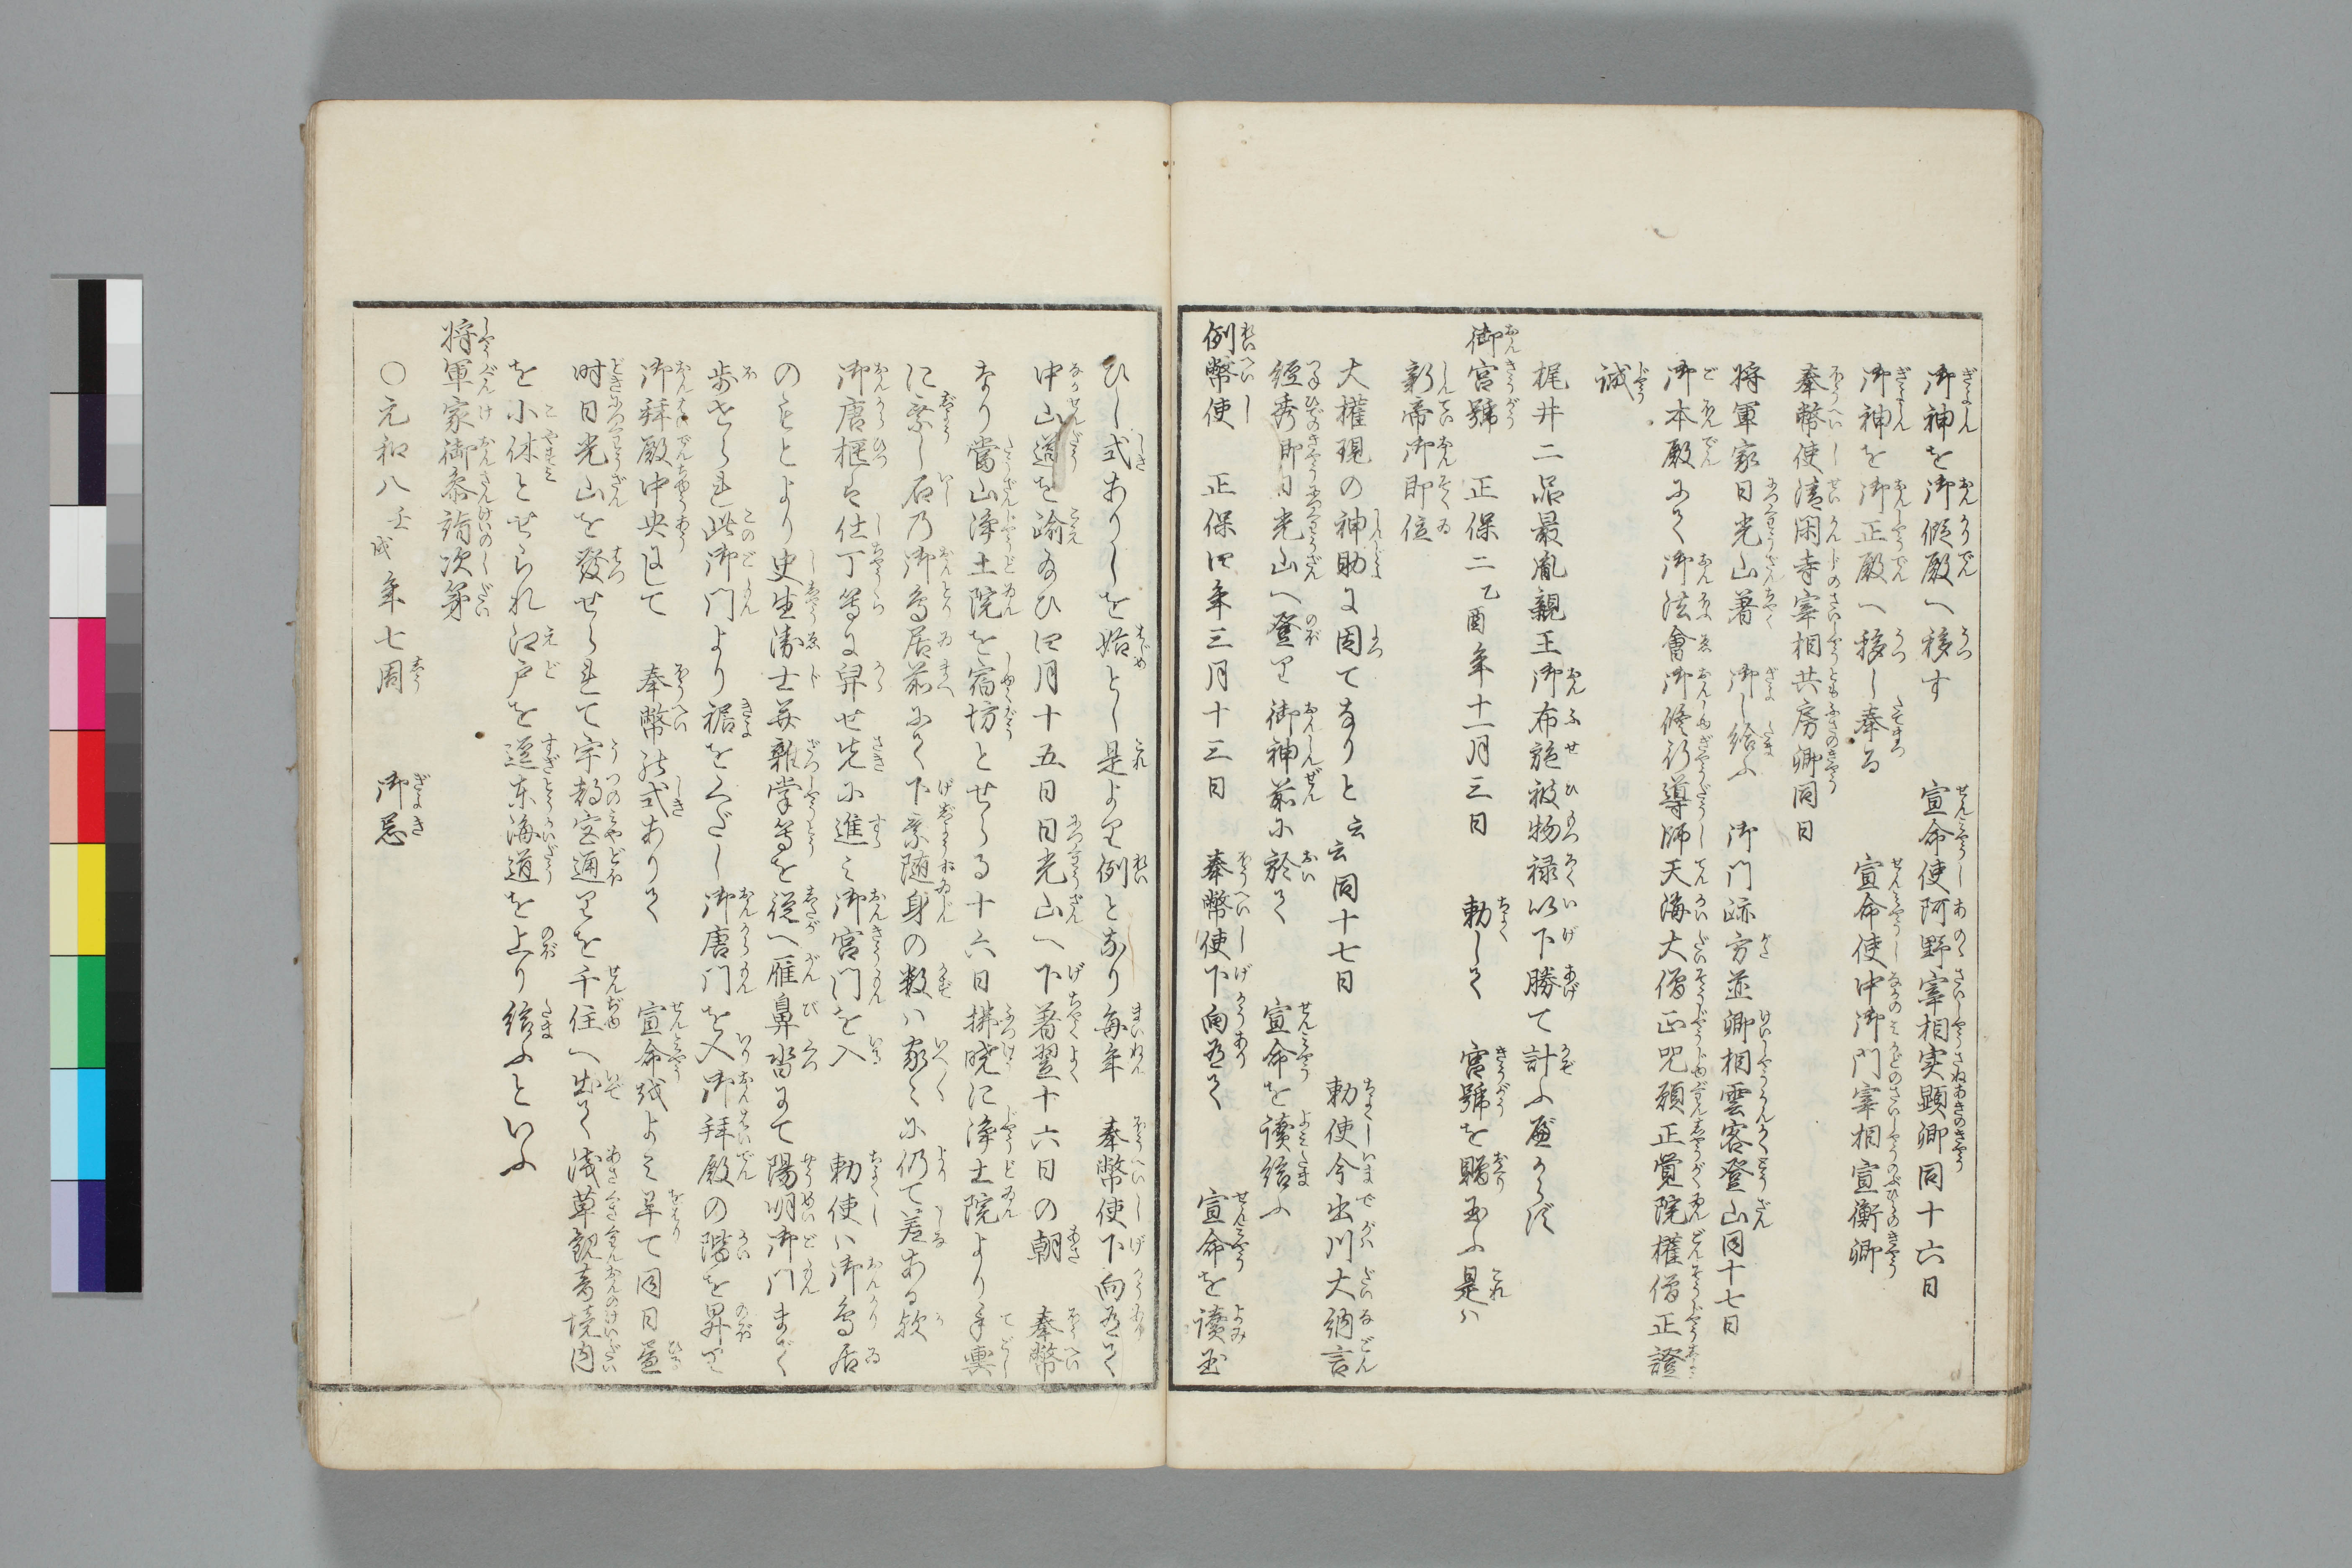 御神を御假殿へ移す　宣命使阿野宰相実顕卿同十六日
御神を御正殿へ移し奉る　宣命使中御門宰相宣衡卿
奉幣使清閑寺宰相共房卿同日
将軍家日光山著　御し給ふ　御門跡方並卿相雲客登山同十七日
御本殿にて御法會御修行導師天海大僧正咒願正覚院權僧正證
誠
梶井二品最胤親王御布施被物禄以下勝て計ふ匱からず
御宮號　正保二乙酉年十一月三日　勅して　宮號を贈玉ふ是ハ
新帝御即位
大權現の神助に因てなりと云云同十七日　勅使今出川大納言
經季卿日光山へ登り御神前に於て　宣命を讀給ふ
例幣使　正保四年三月十三日　奉幣使下向ありて　宣命を讀玉
ひし式ありしを始とし是より例となり毎年　奉幣使下向ありて
中山道を踰玉ひ四月十五日日光山へ下著翌十六日の朝　奉幣
なり當山浄土院を宿坊とせらる十六日拂暁に浄土院より手輿
に乗し石乃御鳥居前にて下乗随身の数ハ家々に仍て差ある歟
御唐櫃を仕丁等に舁せ先に進ミ御宮門を入　勅使ハ御鳥居
のもとより史生衛士并雑掌等を從へ雁鼻沓にて陽明御門まで
歩せられ此御門より裾をくだし御唐門を入御拜殿の階を昇り
御拜殿中央にして　奉幣の式ありて　宣命或よミ畢て同日晝
時日光山を發せられて宇都宮通りを千住へ出て浅草観音境内
を小休とせられ江戸を過東海道を上り給ふといふ
将軍家御参詣次第
〇元和八壬戌年七周　御忌